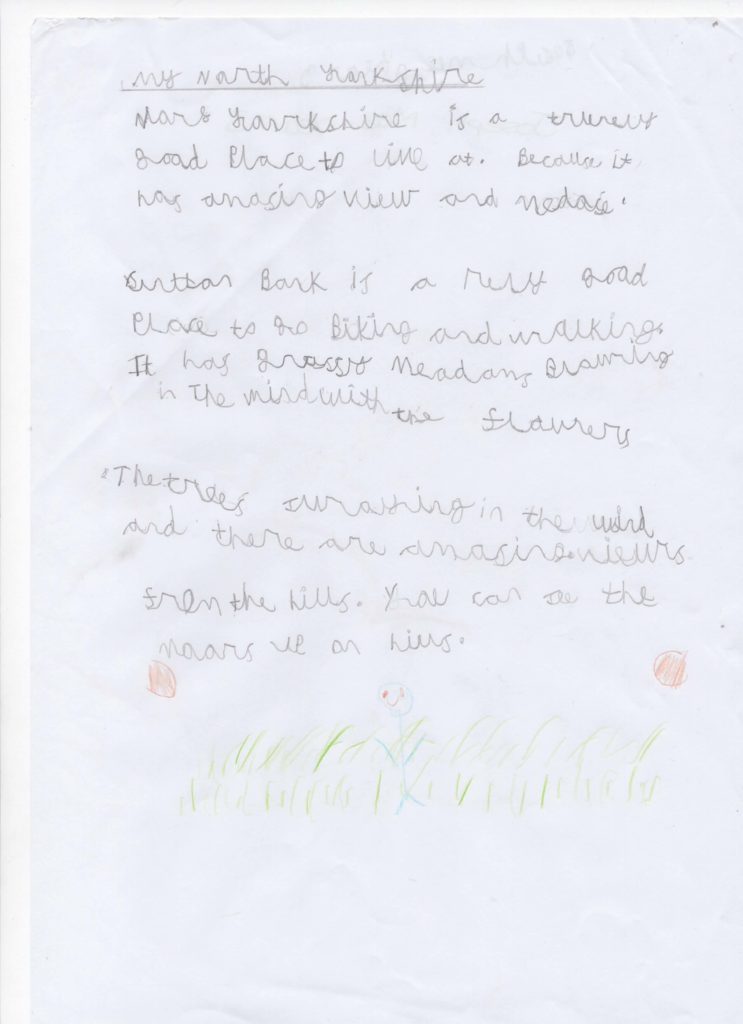 My North Yorkshire
Nors Yorrkshire is a truewly
good Place to live at. Because it
has amasing view and
Suttson Bank is a very good
Place to go Biking and walking.
It has grassy Meadows Browing
in The wind with the flowers
The trees swaying in the wind
and there are amasing views
from the hills. You can see the
moors up on hills.